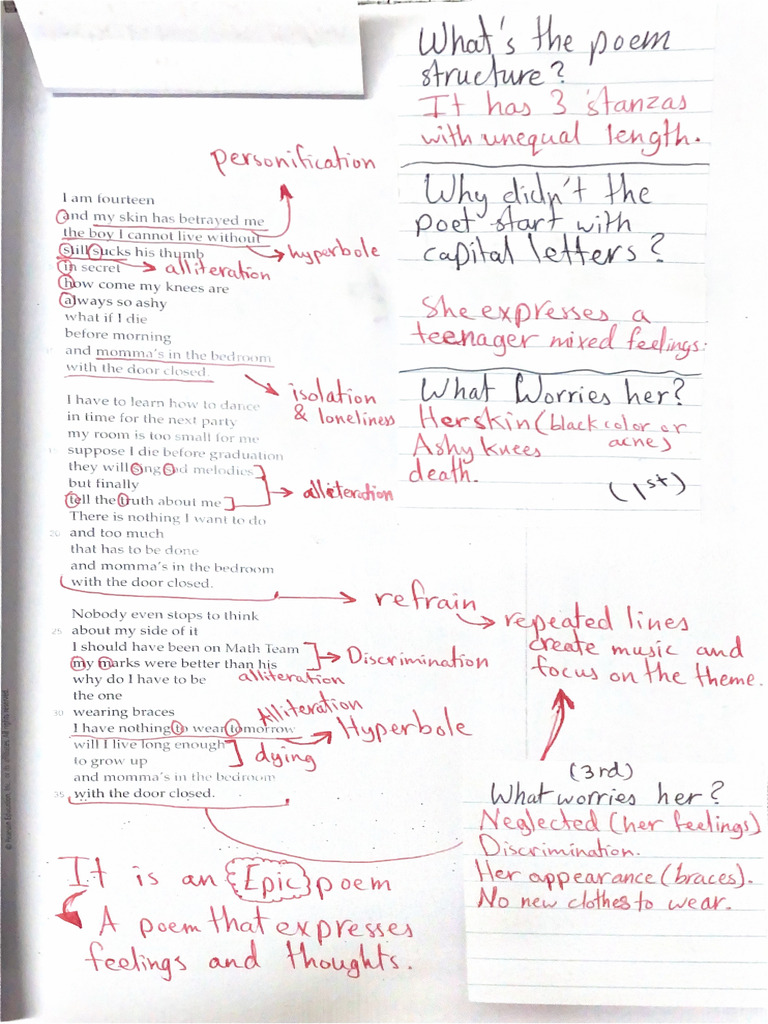 What's the poem
structure?
It has 3 stanzas
with unequal length.
personification
I am fourteen
and my skin has betrayed me
the boy I cannot live without
still sucks his thumb
hyperbole
in secret
alliteration
how come my knees are
always so ashy
what if I die
before morning
and momma's in the bedroom
with the door closed.
isolation
& loneliness
Why didn't the
poet start with
capital letters?
She expresses a
teenager mixed feelings.
What Worries her?
Her skin (black color or
acne)
Ashy knees
death.
(1st)
I have to learn how to dance
in time for the next party
my room is too small for me
15 suppose I die before graduation
they will sing sad melodies
but finally
alliteration
tell the truth about me
There is nothing I want to do
20 and too much
that has to be done
and momma's in the bedroom
with the door closed.
refrain
repeated lines
create music and
focus on the theme.
Nobody even stops to think
25 about my side of it
I should have been on Math Team
Discrimination
my marks were better than his
alliteration
why do I have to be
the one
30 wearing braces
Alliteration
I have nothing to wear tomorrow
Hyperbole
will I live long enough
dying
to grow up
and momma's in the bedroom
35 with the door closed.
(3rd)
What worries her?
Neglected (her feelings)
Discrimination.
Her appearance (braces).
No new clothes to wear.
It is an {Epic} poem
A poem that expresses
feelings and thoughts.